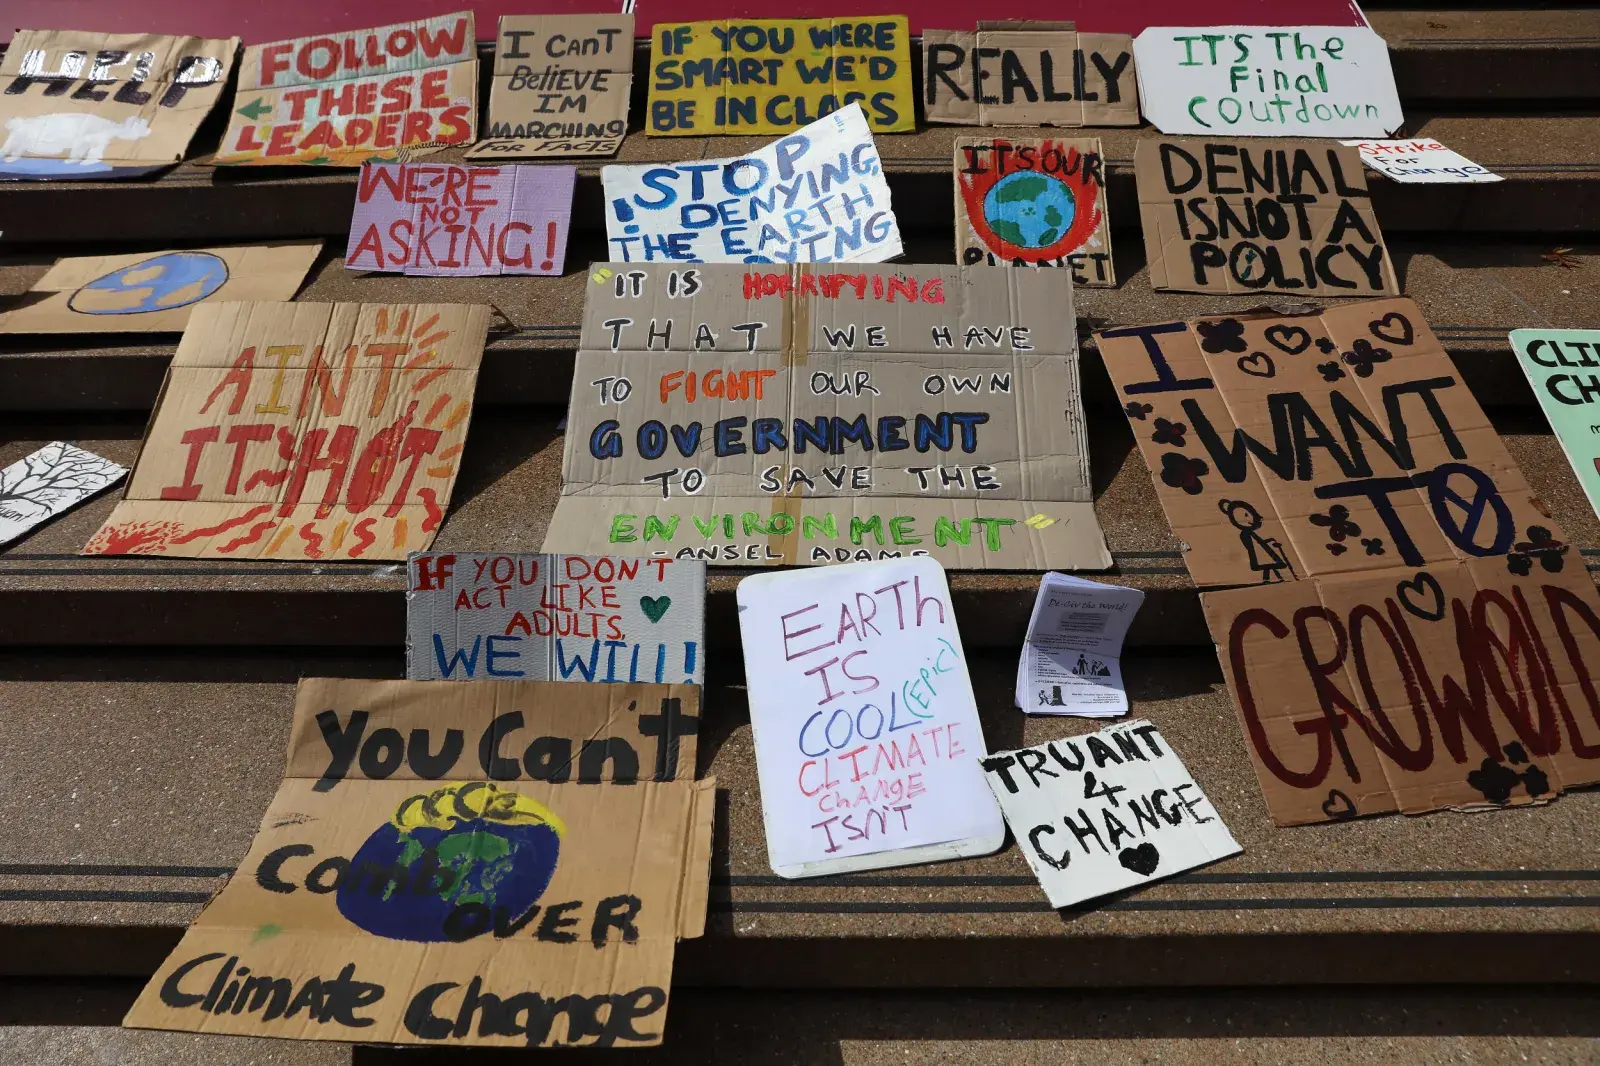 HELP
FOLLOW
THESE
LEADERS
I CAN'T
BELIEVE
I'M
MARCHING
FOR FACTS
IF YOU WERE
SMART WE'D
BE IN CLASS
REALLY
IT'S The
Final
COutdown
Strike
For
Change
WE'RE
NOT
ASKING!
STOP
DENYING,
THE EARTH
IT'S OUR
PLANET
DENIAL
IS NOT A
POLICY
AIN'T
IT HOT
"IT IS HORRIFYING
THAT WE HAVE
TO FIGHT OUR OWN
GOVERNMENT
TO SAVE THE
ENVIRONMENT"
- ANSEL ADAMS
I
WANT
TO
GROW OLD
CH
IF YOU DON'T
ACT LIKE
ADULTS,
WE WILL!
EARTh
IS
COOL (EPIC)
CLIMATE
ChAngE
ISN'T
De-Civ the World!
TRUANT
4
CHANGE
You Can't
Comb
OVER
Climate Change